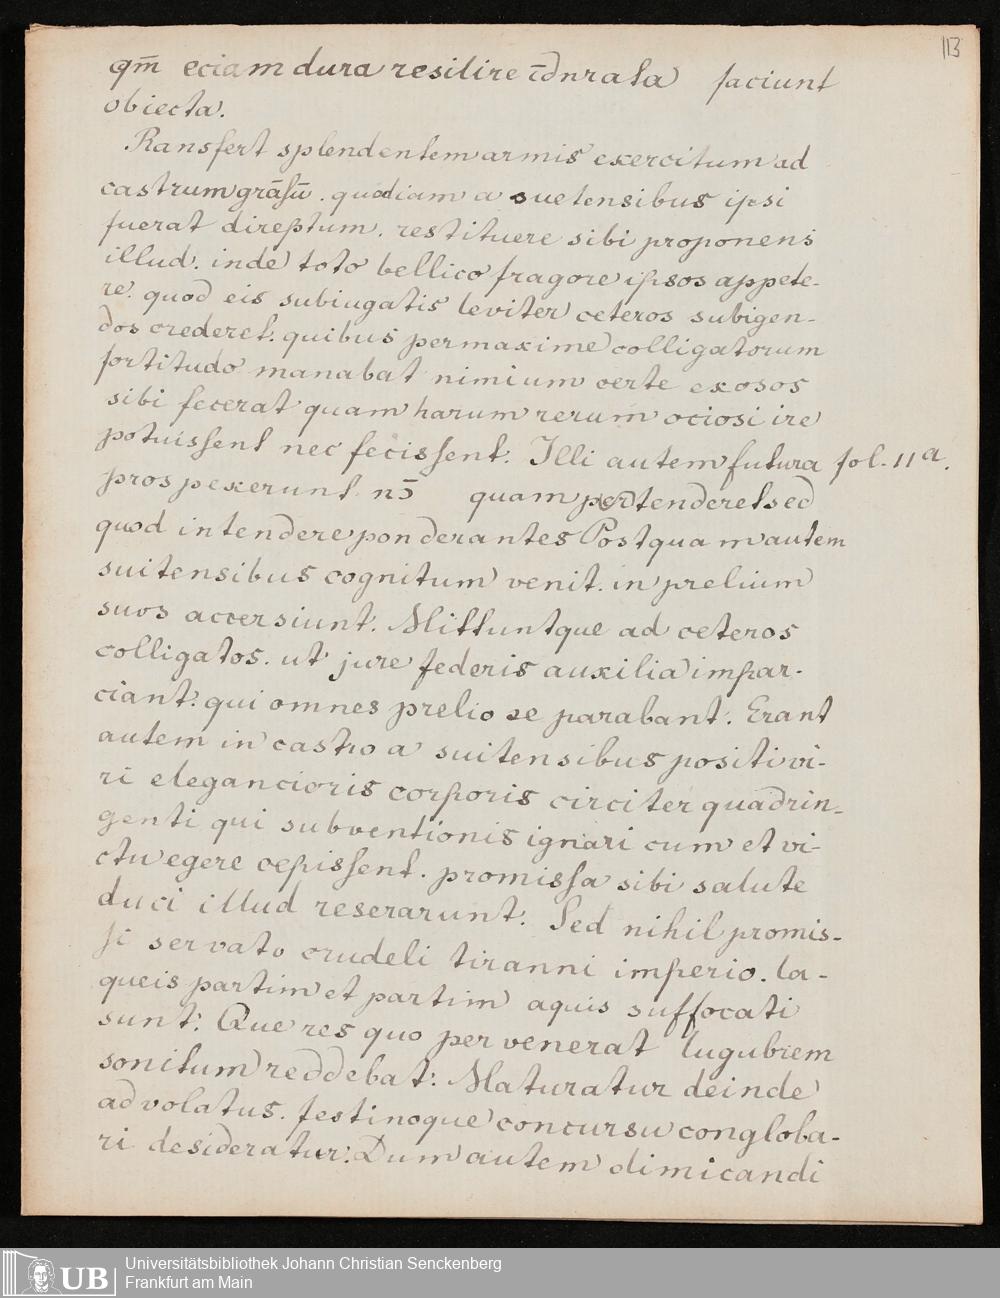 113
qm̄ eciam dura resilire faciunt
obiecta.
Ransfert splendentem armis exercitum ad
castrum grāsū. quod iam a suetensibus ipsi
fuerat direptum. restituere sibi proponens
illud. inde toto bellico fragore ipsos appete-
re. quod eis subiugatis leviter ceteros subigen-
dos crederet. quibus permaxime colligatorum
fortitudo manabat nimium certe exosos
sibi fecerat quam harum rerum ociosi ire
potuissent nec fecissent. Illi autem futura fol. 11a.
prospexerunt. nō quam pertenderet sed
quod intendere ponderantes Postquam autem
suitensibus cognitum venit. in prelium
suos accersiunt. Mittuntque ad ceteros
colligatos. ut jure federis auxilia impar-
ciant. qui omnes prelio se parabant. Erant
autem in castro a suitensibus positi vi-
ri elegancioris corporis circiter quadrin-
genti qui subventionis ignari cum et vi-
ctu egere cepissent. promissa sibi salute
duci illud reserarunt. Sed nihil promis-
si servato crudeli tiranni imperio. la-
queis partim et partim aquis suffocati
sunt. Que res quo per venerat lugubrem
sonitum reddebat. Maturatur deinde
advolatus. festinoque concursu congloba-
ri desideratur. Dum autem dimicandi
UB
Universitätsbibliothek Johann Christian Senckenberg
Frankfurt am Main